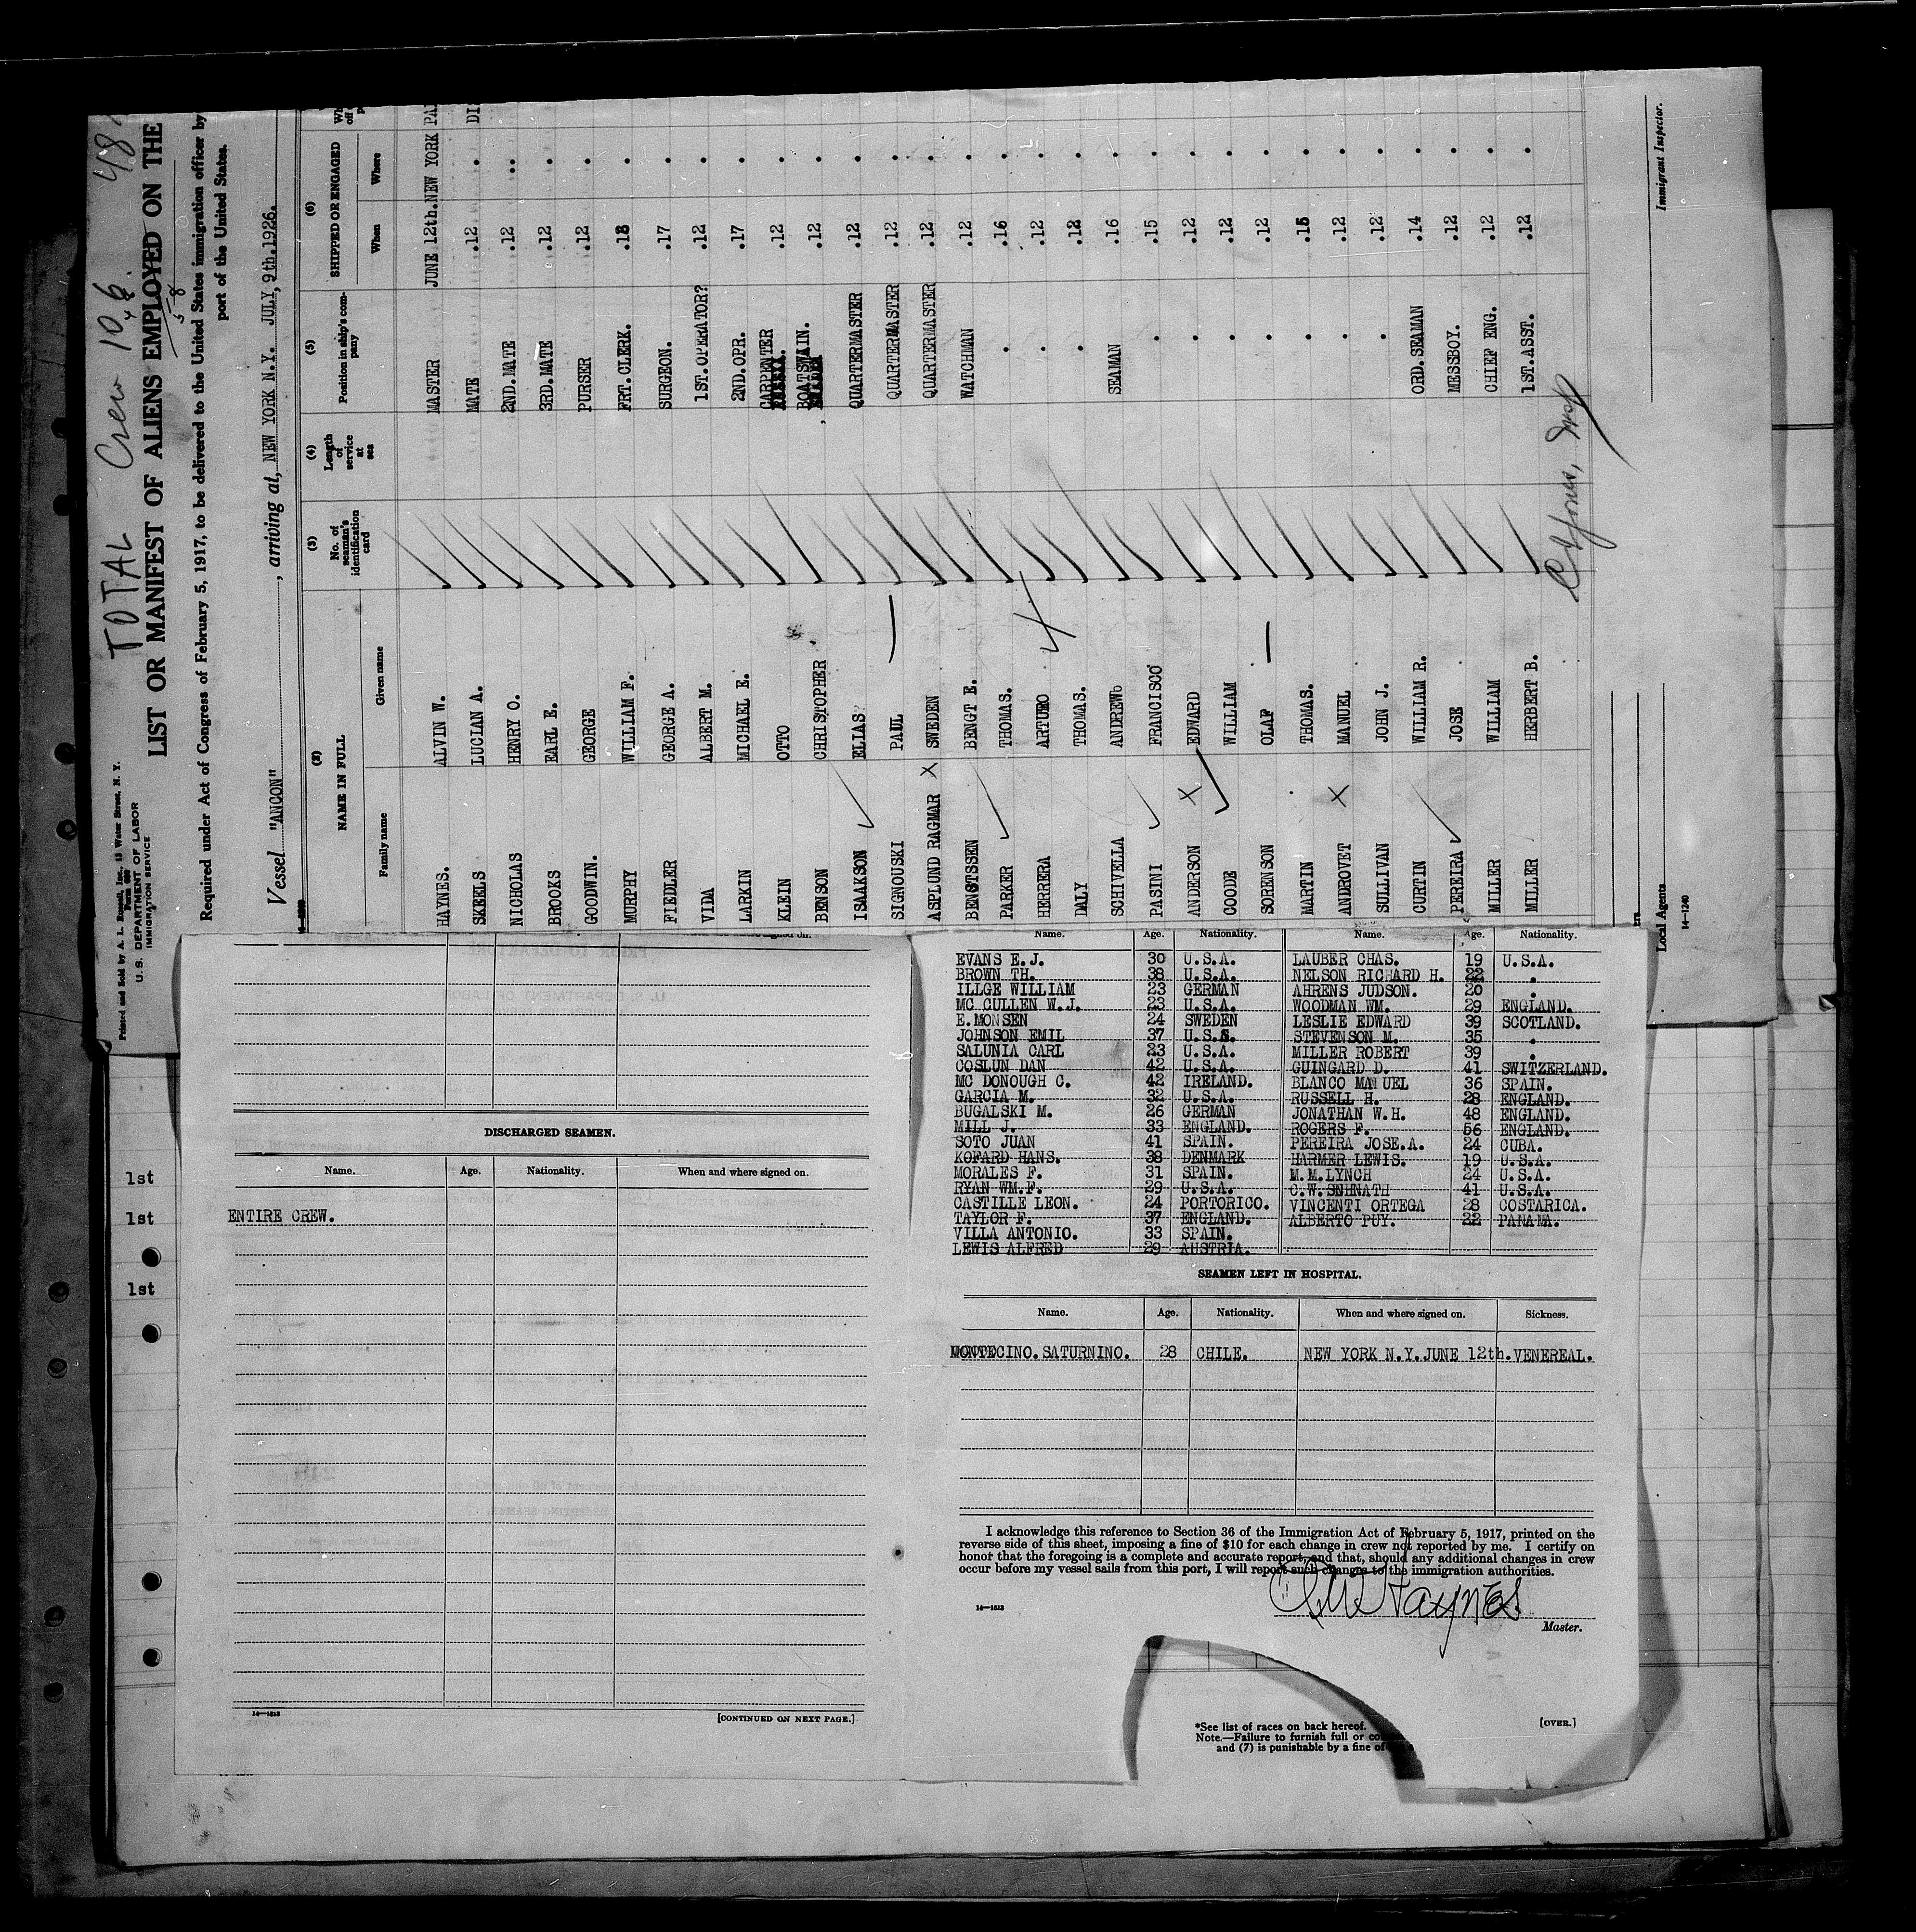 TOTAL Crew 106. 48
Printed and Sold by A. L. Russell, Inc., 15 Water Street, N. Y.
U. S. DEPARTMENT OF LABOR
IMMIGRATION SERVICE
LIST OR MANIFEST OF ALIENS EMPLOYED ON THE
Required under Act of Congress of February 5, 1917, to be delivered to the United States immigration officer by
port of the United States.
Vessel "ANCON", arriving at, NEW YORK N.Y. JULY, 9th.1926.
(2) (3) (4) (5) (6)
NAME IN FULL No. of seaman's identification card Length of service at sea Position in ship's company SHIPPED OR ENGAGED
Family name Given name When Where
HAYNES. ALVIN W. MASTER JUNE 12th. NEW YORK
SKEELS LUCIAN A. MATE .12 .
NICHOLAS HENRY O. 2ND.MATE .12 ..
BROOKS EARL E. 3RD.MATE .12 .
GOODWIN. GEORGE PURSER .12 .
MURPHY WILLIAM F. FRT.CLERK. .
FIEDLER GEORGE A. SURGEON. .17 .
VIDA ALBERT M. 1ST.OPERATOR? .12 .
LARKIN MICHAEL E. 2ND.OPR. .17 .
KLEIN OTTO CARPENTER .12 .
BENSON CHRISTOPHER BOATSWAIN. .12 .
ISAAKSON ELIAS QUARTERMASTER .12 .
SIGNOUSKI PAUL QUARTERMASTER .12 .
ASPLUND RAGMAR X SWEDEN QUARTERMASTER .12 .
BENGTSSEN BENGT E. WATCHMAN .12 .
PARKER THOMAS. . .16 .
HERRERA ARTURO . .12 .
DALY THOMAS. . .12 .
SCHIVELLA ANDREW SEAMAN .16 .
PASINI FRANCISCO . .15 .
ANDERSON X EDWARD . .12 .
COODE WILLIAM . .12 .
SORENSON OLAF . .12 .
MARTIN THOMAS. . .
ANDROVET X MANUEL . .12 .
SULLIVAN JOHN J. . .12 .
CURTIN WILLIAM R. ORD.SEAMAN .14 .
PEREIRA JOSE MESSBOY. .12 .
MILLER WILLIAM CHIEF ENG. .12 .
MILLER HERBERT B. 1ST.ASST. .12 .
Immigrant Inspector.
Local Agents
14—1240
1st
1st
1st
DISCHARGED SEAMEN.
Name. Age. Nationality. When and where signed on.
ENTIRE CREW.
14—1613
[CONTINUED ON NEXT PAGE.]
Name. Age. Nationality. Name. Age. Nationality.
EVANS E.J. 30 U.S.A. LAUBER CHAS. 19 U.S.A.
BROWN TH. 38 U.S.A. NELSON RICHARD H. 22 .
ILLGE WILLIAM 23 GERMAN AHRENS JUDSON. 20 .
MC CULLEN W.J. 23 U.S.A. WOODMAN WM. 29 ENGLAND.
E.MONSEN 24 SWEDEN LESLIE EDWARD 39 SCOTLAND.
JOHNSON EMIL 37 U.S.A. STEVENSON M. 35 .
SALUNIA CARL 23 U.S.A. MILLER ROBERT 39 .
COSLUN DAN 42 U.S.A. GUINGARD D. 41 SWITZERLAND.
MC DONOUGH C. 42 IRELAND. BLANCO MANUEL 36 SPAIN.
GARCIA M. 32 U.S.A. RUSSELL H. 28 ENGLAND.
BUGALSKI M. 26 GERMAN JONATHAN W.H. 48 ENGLAND.
MILL J. 33 ENGLAND. ROGERS F. 56 ENGLAND.
SOTO JUAN 41 SPAIN. PEREIRA JOSE.A. 24 CUBA.
KOFARD HANS. 38 DENMARK HARMER LEWIS. 19 U.S.A.
MORALES F. 31 SPAIN. M.M.LYNCH 24 U.S.A.
RYAN WM.F. 29 U.S.A. C.W. 41 U.S.A.
CASTILLE LEON. 24 PORTORICO. VINCENTI ORTEGA 28 COSTARICA.
TAYLOR F. 37 ENGLAND. ALBERTO PUY. 22 PANAMA.
VILLA ANTONIO. 33 SPAIN.
LEWIS ALFRED 29 AUSTRIA.
SEAMEN LEFT IN HOSPITAL.
Name. Age. Nationality. When and where signed on. Sickness.
MONTECINO. SATURNINO. 28 CHILE. NEW YORK N.Y. JUNE 12th. VENEREAL.
I acknowledge this reference to Section 36 of the Immigration Act of February 5, 1917, printed on the
reverse side of this sheet, imposing a fine of $10 for each change in crew not reported by me. I certify on
honor that the foregoing is a complete and accurate report, and that, should any additional changes in crew
occur before my vessel sails from this port, I will report such changes to the immigration authorities.
14—1613
Haynes
Master.
*See list of races on back hereof.
[OVER.]
Note.—Failure to furnish full or
and (7) is punishable by a fine of